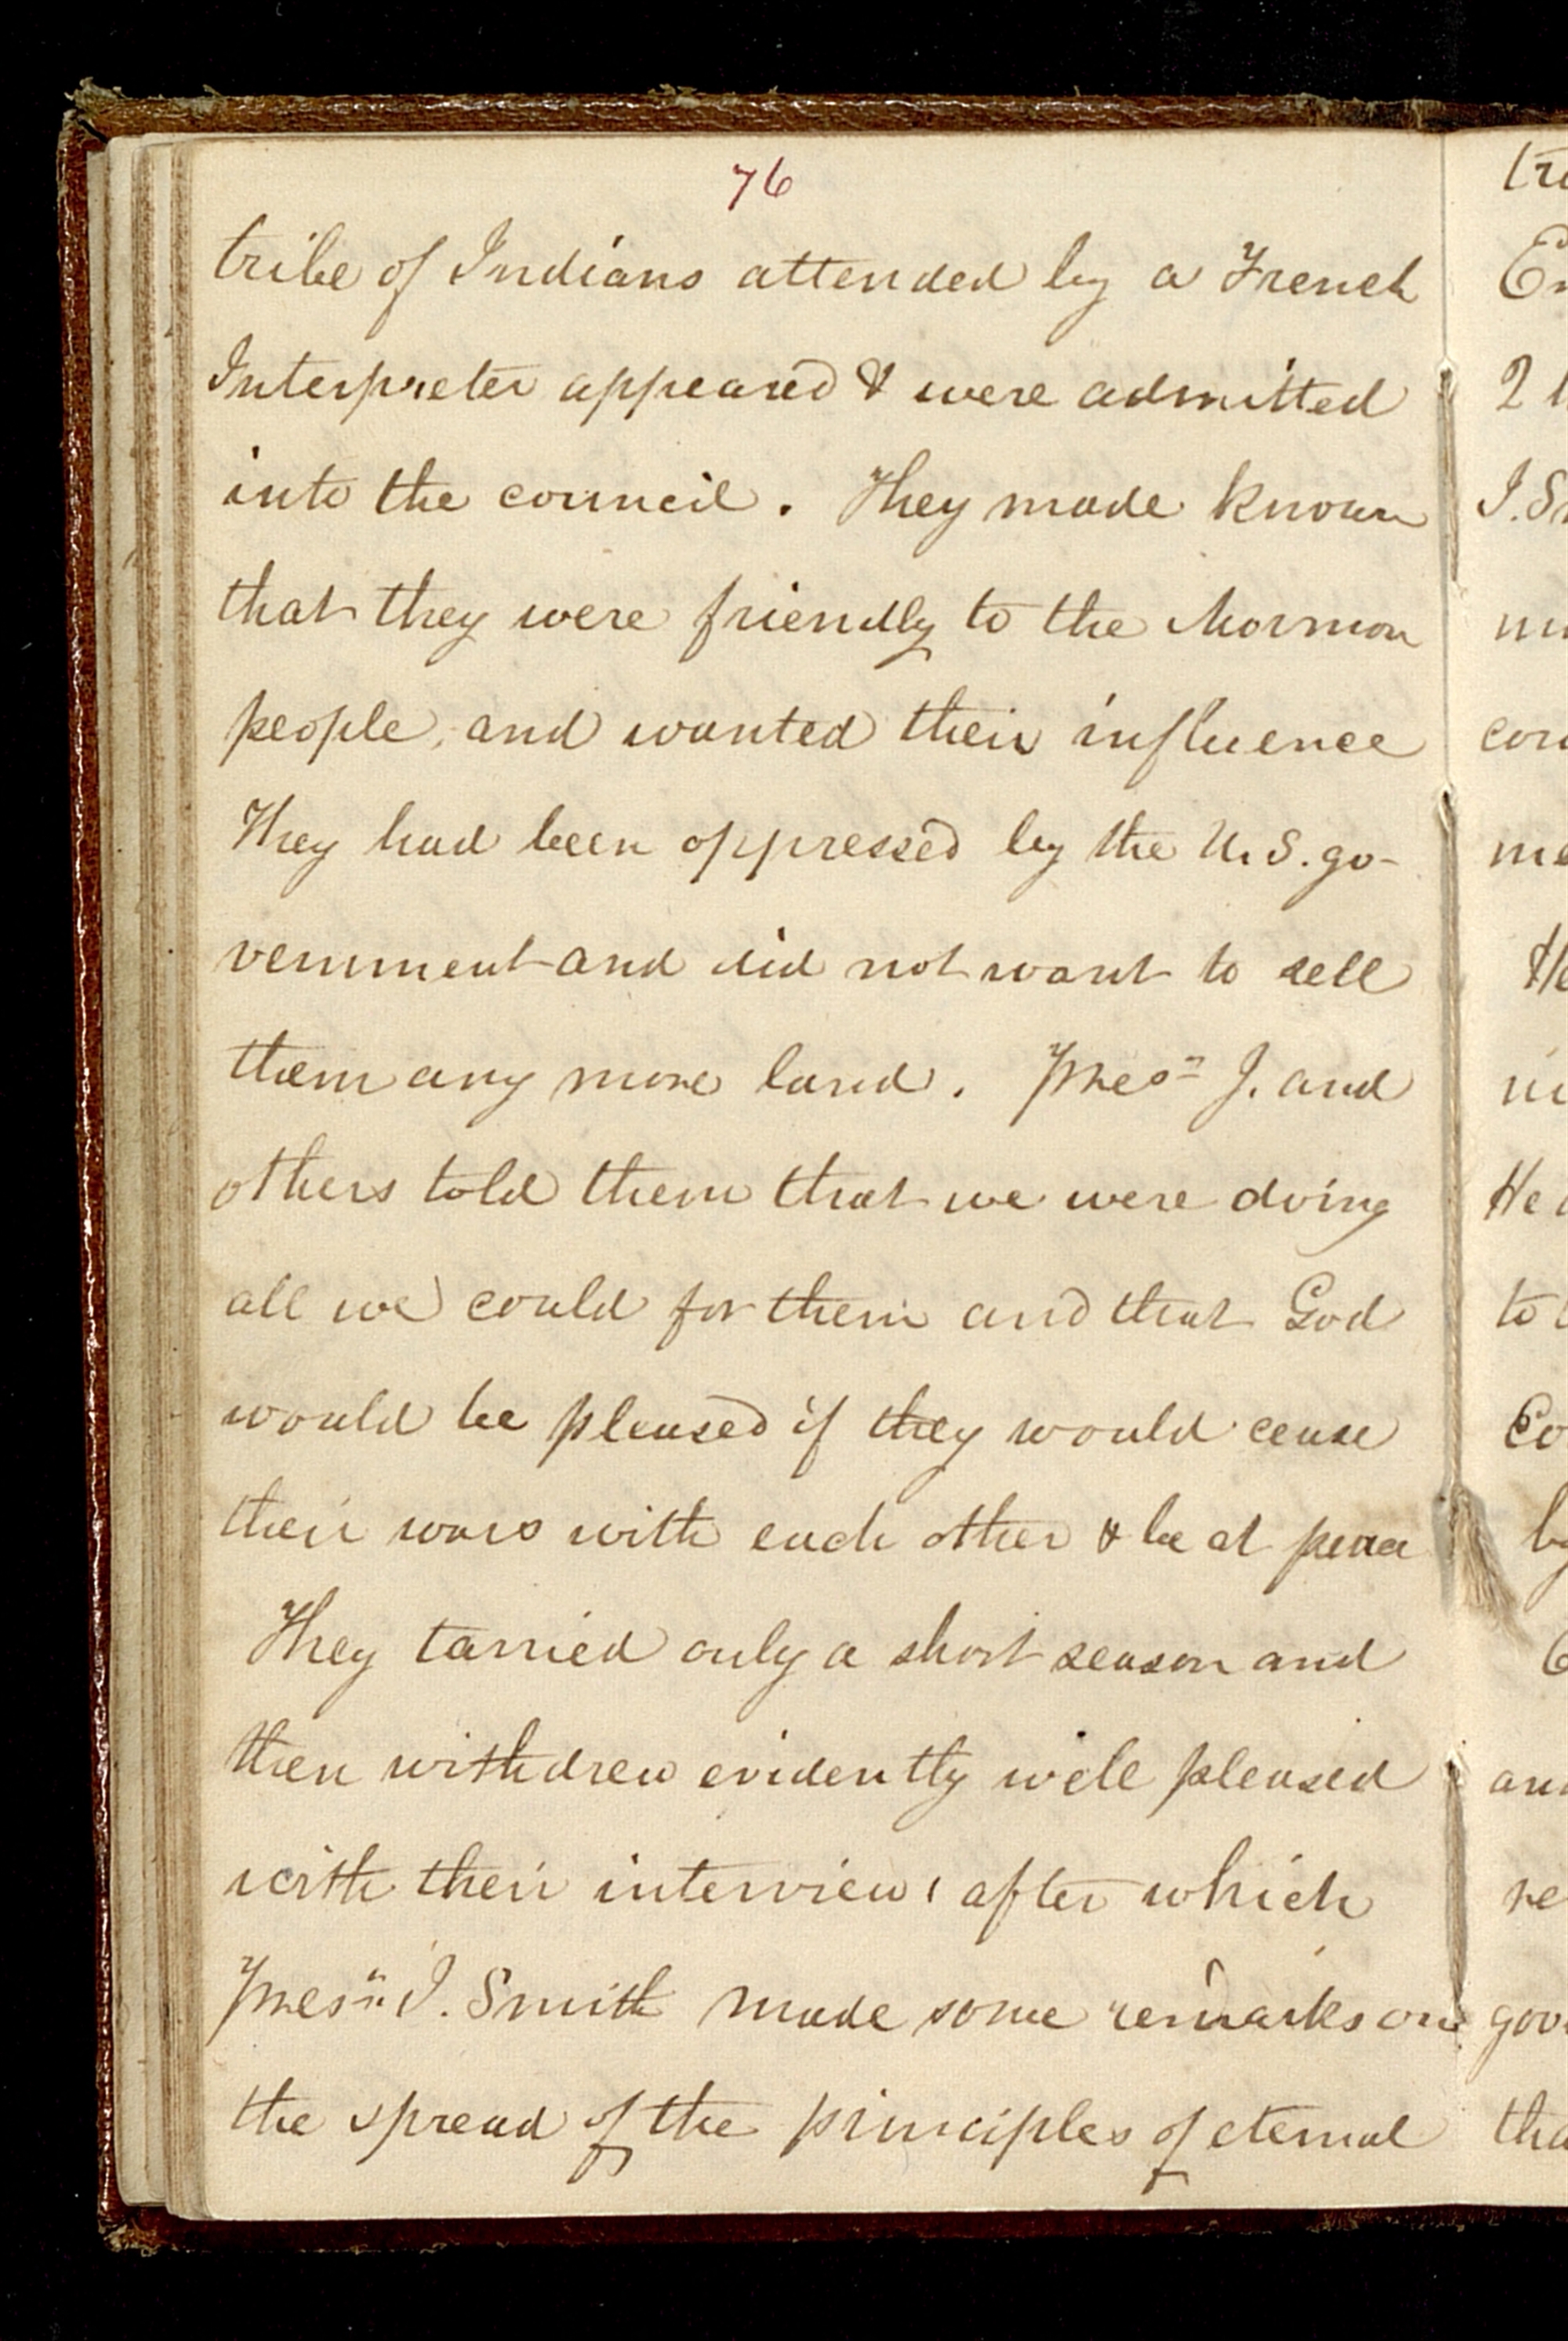 76
tribe of Indians attended by a French
Interpreter appeared & were admitted
into the council. They made known
that they were friendly to the Mormon
people, and wanted their influence
They had been oppressed by the U.S. go-
vernment and did not want to sell
them any more land. Presn J. and
others told them that we were doing
all we could for them and that God
would be pleased if they would cease
their wars with each other & be at peace
They tarried only a short season and
then withdrew evidently well pleased
with their interview, after which
Presn. J. Smith made some remarks on
the spread of the principles of eternal